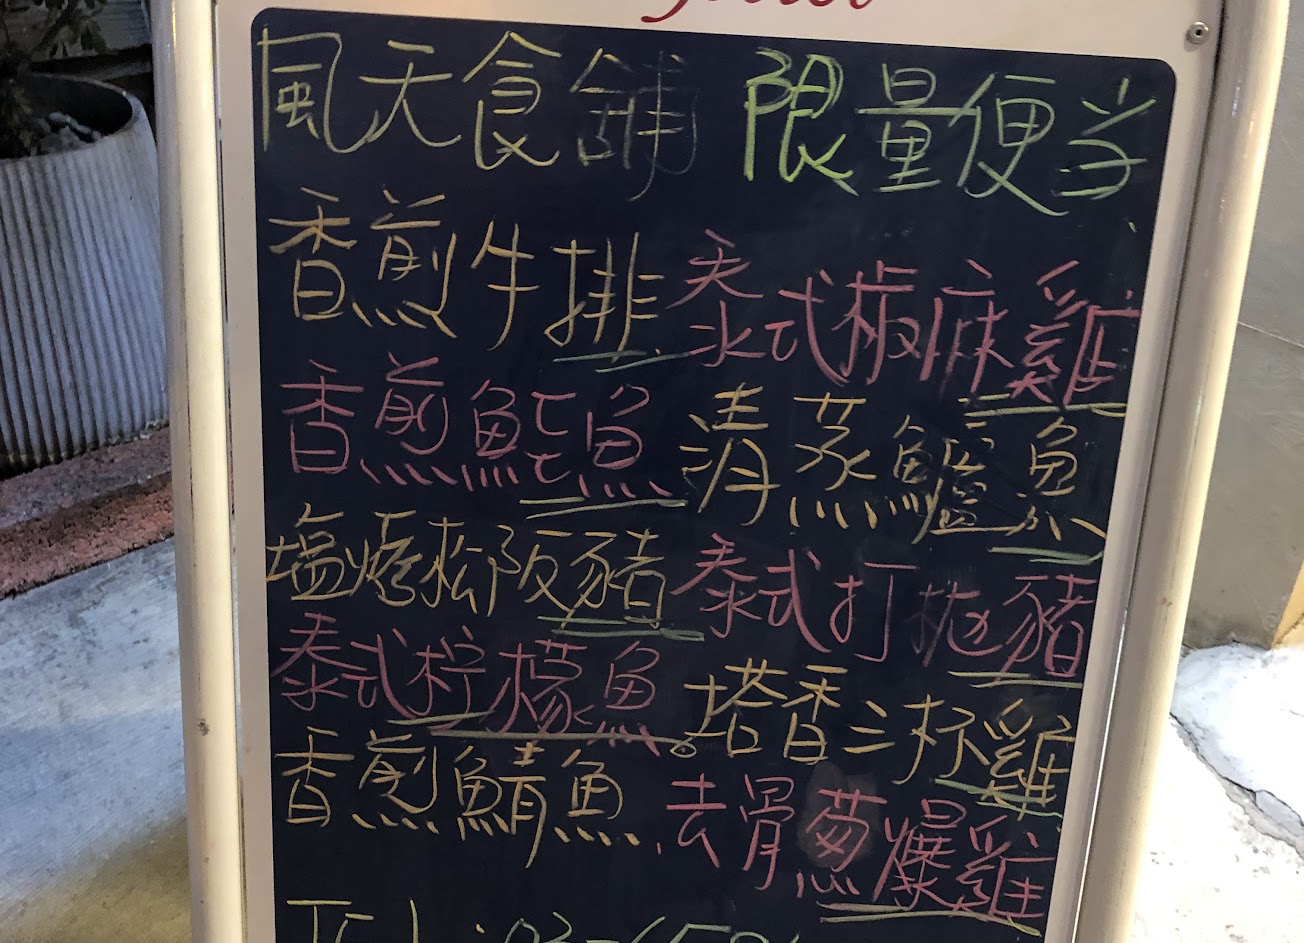 風天食舖 限量便当
香煎牛排 泰式椒麻雞
香煎鮭魚 清蒸鱸魚
塩燒松阪豬 泰式打抛豬
泰式柠檬魚 塔香三杯雞
香煎鯖魚 去骨葱爆雞
Tel: